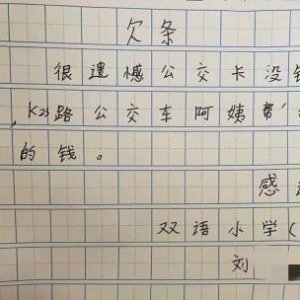 欠条
很遗憾公交卡没钱
,K23路公交车阿姨帮
的钱。
感
双语小学(
刘